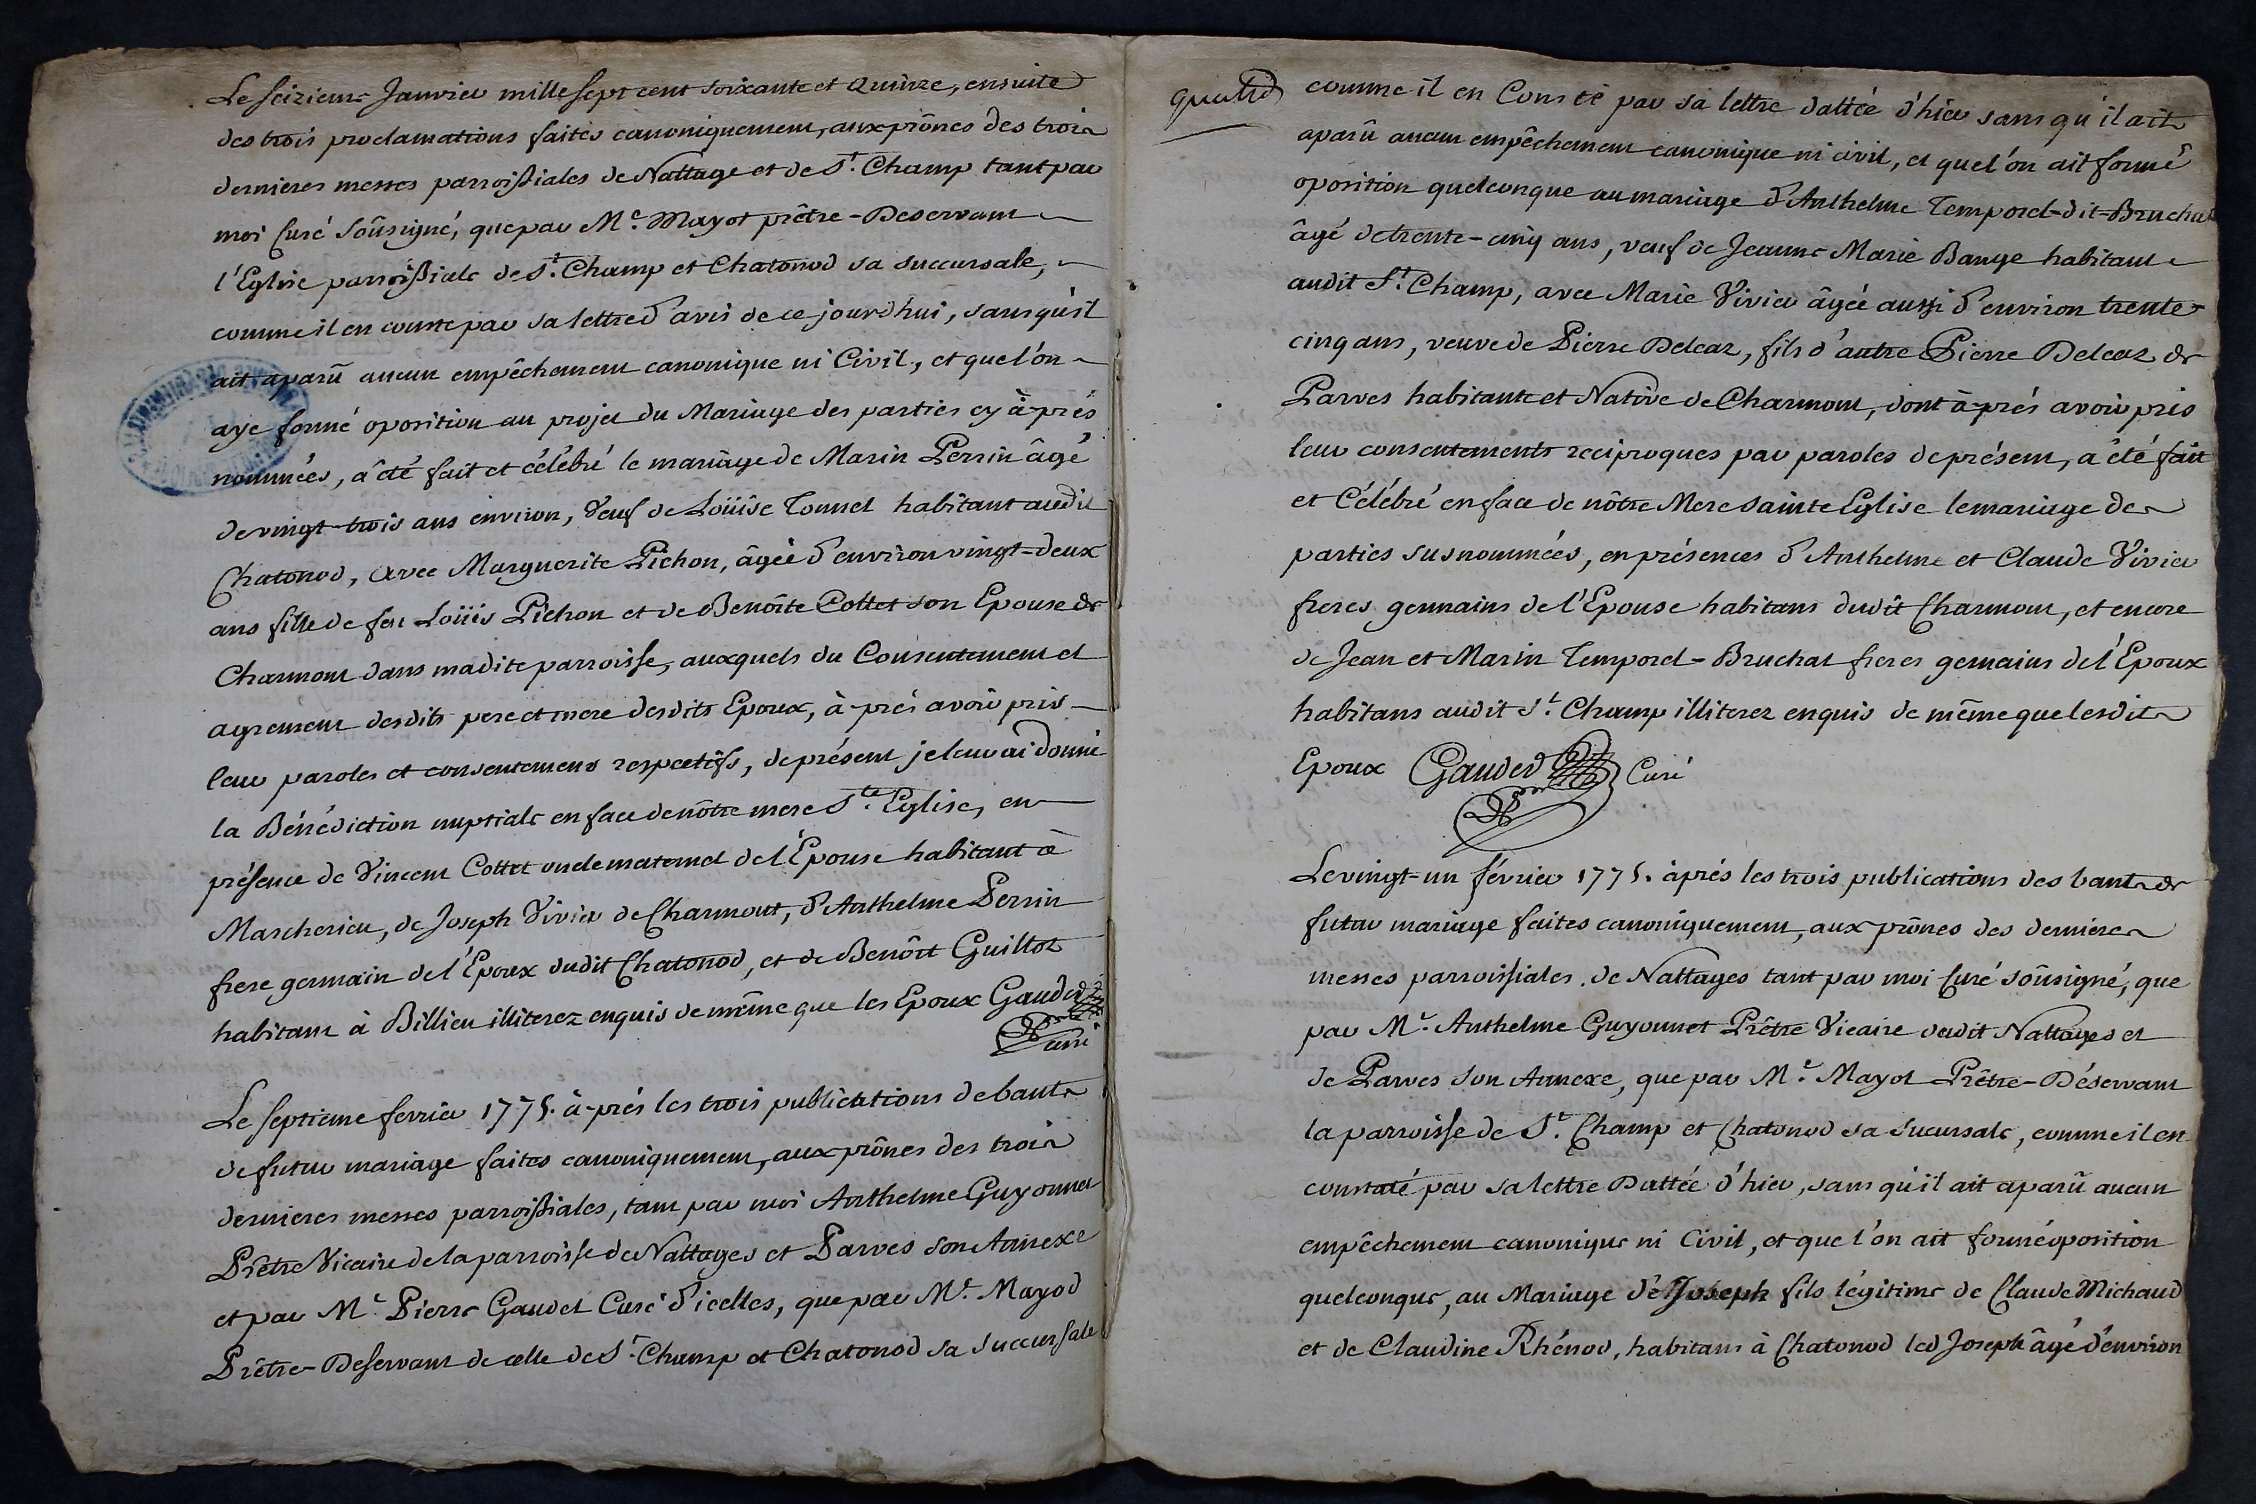 Le seizieme Janvier mille sept cent soixante et Quinze, ensuite
des trois proclamations faites canoniquement, aux prônes des trois
dernieres messes parroissiales de Nattage et de St. Champ tant par
moi Curé soûsigné, que par Mr. Mayot prêtre-Deservant
l'Eglise parroissiale de St. Champ et Chatonod sa succursale,
comme il en conste par sa lettre d'avis de ce jourd'hui, sans qu'il
ait aparû aucun empêchement canonique ni Civil, et quel'on
aye formé oposition au projet du Mariage des parties cy à-prés
nommées, a êté fait et célébré le mariage de Marin Perrin âgé
de vingt-trois ans environ, Veuf de Loüise Tonnel habitant audit
Chatonod, avec Marguerite Pichon, âgée d'environ vingt-deux
ans fille de feu Loüis Pichon et de Benoîte Collet son Epouse de
Charmont dans madite parroisse, auxquels du Consentement et
agrement desdits pere et mere desdits Epoux, à-prés avoir pris
leur paroles et consentemens respectifs, de présent je leur ai donné
la Bénédiction nuptiale en face de nôtre mere Ste. Eglise, en
présence de Vincent Collet oncle maternel de l'Epouse habitant à
Marcherieu, de Joseph Vivier de Charmont, d'Anthelme Perrin
frere germain de l'Epoux dudit Chatonod, et de Benôit Guillot
habitant à Billieu illiterez enquis de même que les Epoux Gaudet
Curé
Le septieme fevrier 1775. à-prés les trois publications de bants
de futur mariage faites canoniquement, aux prônes des trois
dernieres messes parroissiales, tant par moi Anthelme Guyonnet
Prêtre Vicaire de la parroisse de Nattages et Parves son Annexe
et par Mr. Pierre Gaudet Curé d'icelles, que par Mr. Mayod
Prêtre-Deservant de celle de St. Champ et Chatonod sa succursale
comme il en Consté par sa lettre dattée d'hier sans qu'il ait
aparû aucun empêchement canonique ni civil, et quel'on ait formé
oposition quelconque au mariage d'Anthelme Temporel-dit-Bruchat
âgé de trente-cinq ans, veuf de Jeanne Marie Bauge habitant
audit St. Champ, avec Marie Vivier âgée aussi d'environ trente
cinq ans, veuve de Pierre Delcaz, fils d'autre Pierre Delcaz de
Parves habitante et Native de Charmont, dont à-prés avoir pris
leur consentements reciproques par paroles de présent, a été fait
et Célébré en face de nôtre Mere sainte Eglise le mariage des
parties susnommées, en présences d'Anthelme et Claude Vivier
freres germains de l'Epouse habitans dudit Charmont, et encore
de Jean et Marin Temporel-Bruchat freres gemains de l'Epoux
habitans audit St. Champ illiterez enquis de même que lesdits
Epoux Gaudet Curé
Le vingt-un février 1775. àprés les trois publications des bants de
futur mariage faites canoniquement, aux prônes des dernieres
messes parroissiales de Nattages tant par moi Curé soûsigné, que
par Mr. Anthelme Guyonnet Prêtre Vicaire dudit Nattages et
de Parves son Annexe, que par Mr. Mayot Prêtre-Déservant
la parroisse de St. Champ et Chatonod sa sucursale, comme il en
constaté par sa lettre Dattée d'hier, sans qu'il ait aparû aucun
empêchement canonique ni Civil, et que l'on ait formé oposition
quelconque, au Mariage de Joseph fils légitime de Claude Michaud
et de Claudine Rhénod, habitans à Chatonod led Joseph âgé d'environ